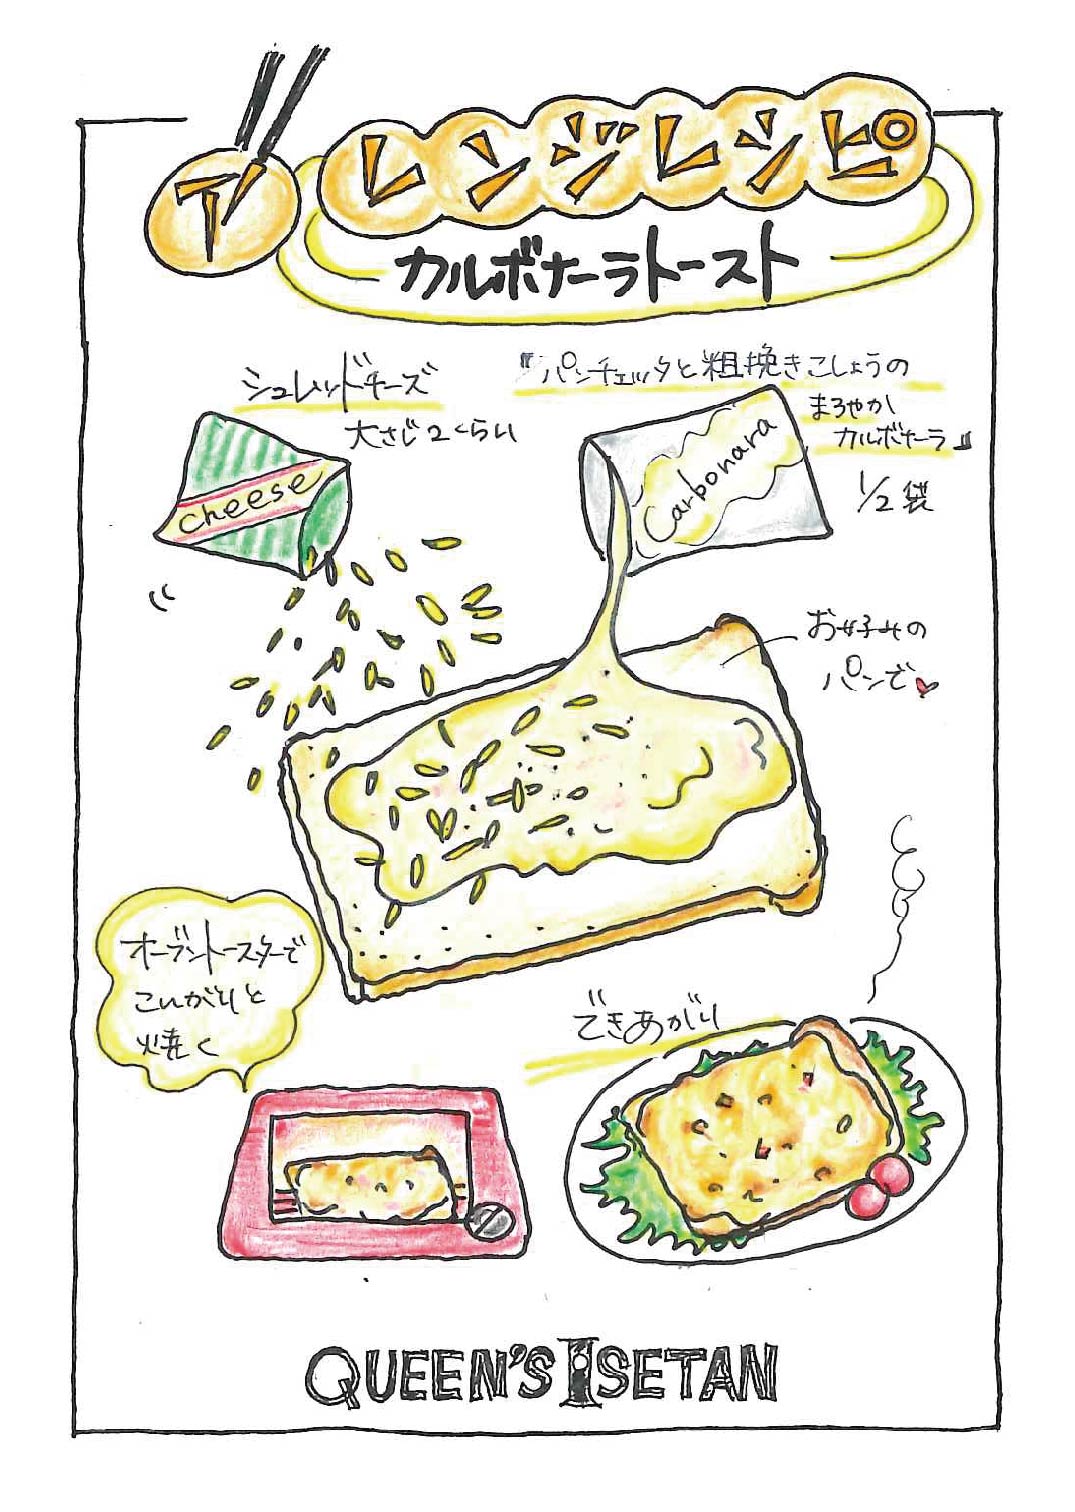 アレンジレシピ
カルボナーラトースト
シュレッドチーズ
大さじ2くらい
『パンチェッタと粗挽きこしょうの
まろやか
カルボナーラ』
1/2袋
cheese
Carbonara
お好みの
パンで
オーブントースターで
こんがりと
焼く
できあがり
QUEEN'S ISETAN